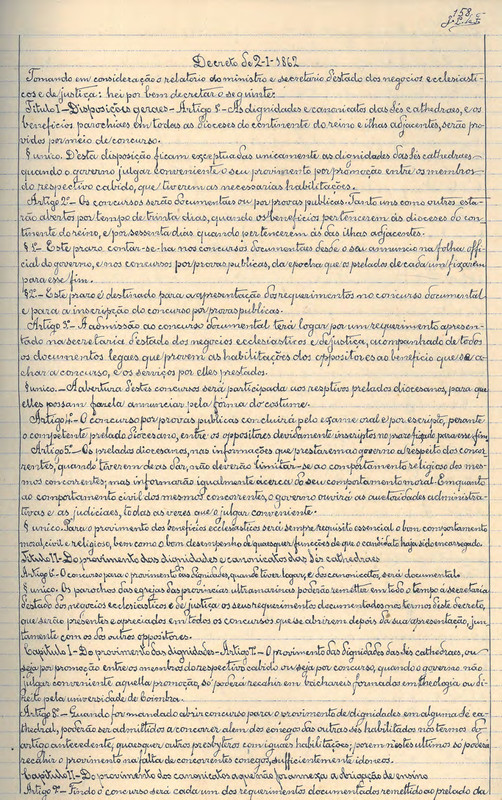 158
Decreto de 2-1-1862
Tomando em consideração o relatorio do ministro e secretario d'estado dos negocios ecclesiasti-
cos e de justiça: hei por bem decretar o seguinte:
Titulo I - Disposições geraes - Artigo 1º - As dignidades e canonicatos das sés cathedraes, e os
beneficios parochiaes em todas as dioceses do continente do reino e ilhas adjacentes, serão pro-
vidos por meio de concurso.
§ unico. D'esta disposição ficam exceptuadas unicamente as dignidades das sés cathedraes
quando o governo julgar conveniente o seu provimento por promoção entre os membros
do respectivo cabido, que tiverem as necessarias habilitações.
Artigo 2º - Os concursos serão documentaes ou por provas publicas. Tanto uns como outros esta-
rão abertos por tempo de trinta dias, quando os beneficios pertencerem ás dioceses do con-
tinente do reino, e por sessenta dias quando pertencerem ás das ilhas adjacentes.
§ 1º - Este prazo contar-se-ha nos concursos documentaes desde o seu annuncio na folha offi-
cial do governo, e nos concursos por provas publicas, da epocha que os prelados de cada um fixarem
para esse fim.
§ 2º - Este prazo é destinado para a apresentação dos requerimentos no concurso documental
e para a inscripção do concurso por provas publicas.
Artigo 3º - A admissão ao concurso documental terá logar por um requerimento apresen-
tado na secretaria d'estado dos negocios ecclesiasticos e de justiça, acompanhado de todos
os documentos legaes que provem as habilitações dos oppositores ao beneficio que se a-
char a concurso, e os serviços por elles prestados.
§ unico. - A abertura d'estes concursos será participada aos resptivos prelados diocesanos, para que
elles possam fazel-a annunciar pela forma do costume.
Artigo 4º - O concurso por provas publicas concluirá pelo exame oral e por escripto, perante
o competente prelado diocesano, entre os oppositores devidamente inscriptos no prazo fixado para esse fim.
Artigo 5º - Os prelados diocesanos, nas informações que prestarem ao governo a respeito dos concor-
rentes, quando tiverem de as dar, não deverão limitar-se ao comportamento religioso dos mes-
mos concorrentes; mas informarão igualmente ácerca do seu comportamento moral. Emquanto
ao comportamento civil dos mesmos concorrentes, o governo ouvirá as auctoridades administra-
tivas e as judiciaes, todas as vezes que o julgar conveniente.
§ unico. Para o provimento dos beneficios ecclesiasticos será sempre requisito essencial o bom comportamento
moral, civil e religioso, bem como o bom desempenho de quaesquer funcções de que o candidato haja sido encarregado.
Titulo II - Do provimento das dignidades e canonicatos das sés cathedraes
Artigo 6º - O concurso para o provimento das dignidades, quando tiver logar, e dos canonicatos, será documental.
§ unico. Os parochos das egrejas das provincias ultramarinas poderão remetter em todo o tempo á secretaria
d'estado dos negocios ecclesiasticos e de justiça os seus requerimentos documentados nos termos d'este decreto,
que serão presentes e apreciados em todos os concursos que se abrirem depois da sua apresentação, jun-
tamente com os dos outros oppositores.
Capitulo I - Do provimento das dignidades - Artigo 7º - O provimento das dignidades das sés cathedraes, ou
seja por promoção entre os membros do respectivo cabido ou seja por concurso, quando o governo não
julgar conveniente aquella promoção, só poderá recahir em bachareis formados em theologia ou di-
reito pela universidade de Coimbra.
Artigo 8º - Quando for mandado abrir concurso para o provimento de dignidades em alguma sé ca-
thedral, poderão ser admittidos a concorrer alem dos conegos das outras sés habilitados nos termos do
artigo antecedente, quaesquer outros presbyteros com iguaes habilitações; porem nestes ultimos só poderá
recahir o provimento na falta de concorrentes conegos, sufficientemente idoneos.
Capitulo II - Do provimento dos canonicatos a que não for annexa a obrigação de ensino
Artigo 9º - Findo o concurso será cada um dos requerimentos documentados remettido ao prelado da